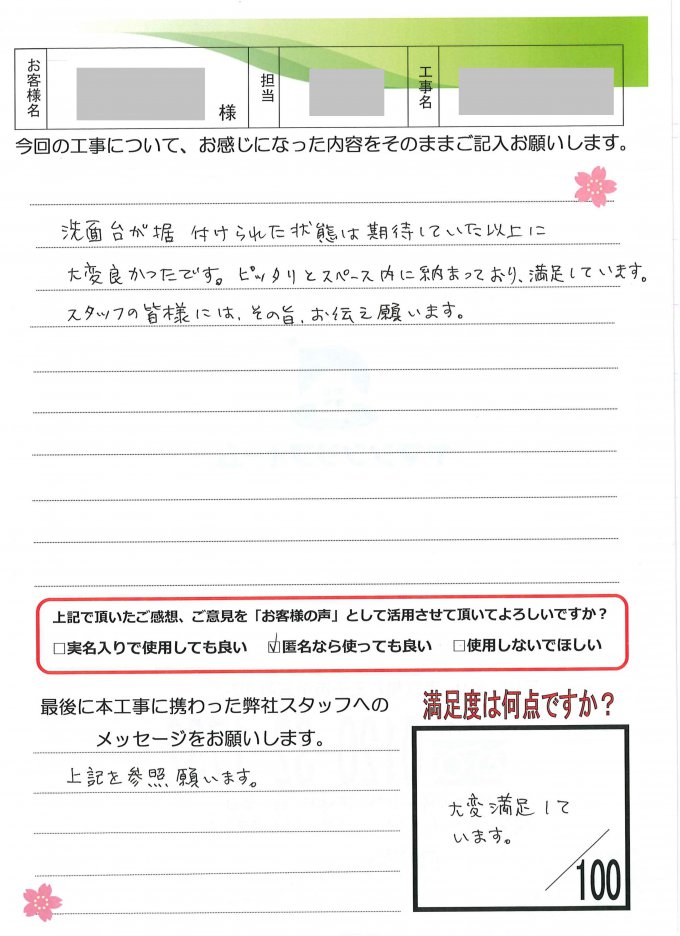 お客様名
様
担当
工事名
今回の工事について、お感じになった内容をそのままご記入お願いします。
洗面台が据 付けられた状態は期待していた以上に
大変良かったです。ピッタリとスペース内に納まっており、満足しています。
スタッフの皆様には、その旨、お伝え願います。
上記で頂いたご感想、ご意見を「お客様の声」として活用させて頂いてよろしいですか？
□実名入りで使用しても良い ☑匿名なら使っても良い □使用しないでほしい
最後に本工事に携わった弊社スタッフへの
メッセージをお願いします。
上記を参照願います。
満足度は何点ですか？
大変満足して
います。
/100